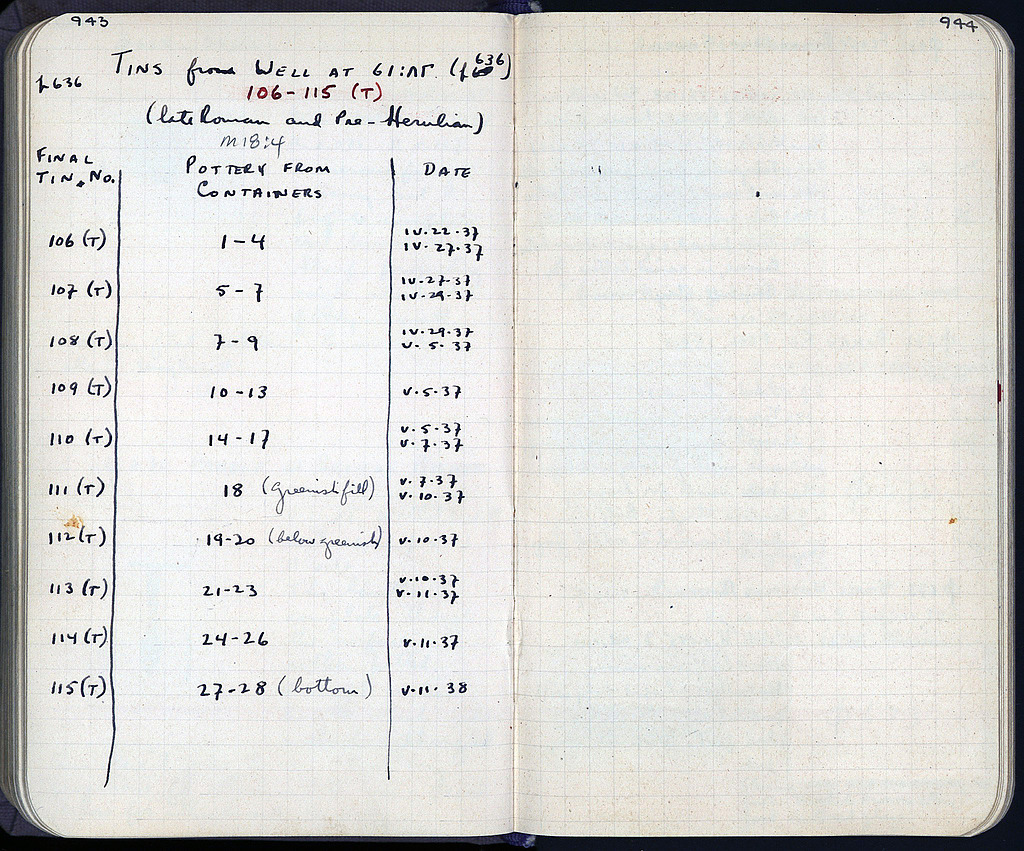 943
944
TINS from WELL AT 61:ΛΓ. (p 636)
p636
106-115 (T)
(late Roman and Pre-Herulian)
M18:4
FINAL TIN. No.
POTTERY FROM CONTAINERS
DATE
106 (T) 1-4 IV.22.37
IV.27.37
107 (T) 5-7 IV.27.37
IV.29.37
108 (T) 7-9 IV.29.37
V.5.37
109 (T) 10-13 V.5.37
110 (T) 14-17 V.5.37
V.7.37
111 (T) 18 (greenish fill) V.7.37
V.10.37
112 (T) 19-20 (below greenish) V.10.37
113 (T) 21-23 V.10.37
V.11.37
114 (T) 24-26 V.11.37
115 (T) 27-28 (bottom) V.11.38